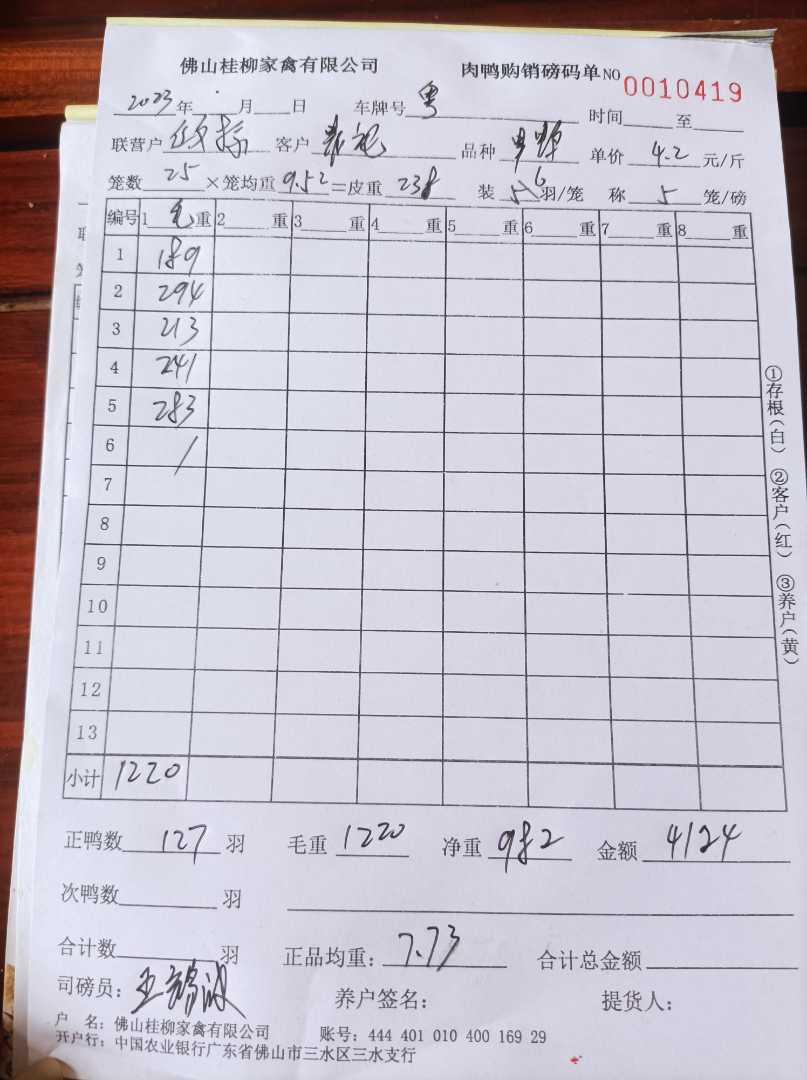 佛山桂柳家禽有限公司 肉鸭购销磅码单 NO 0010419
2023年 月 日 车牌号 粤 时间 至
联营户 客户 品种 单价 4.2 元/斤
笼数 25 ×笼均重 9.52 =皮重 238 装 5 6 羽/笼 称 5 笼/磅
编号 1 毛重 2 重 3 重 4 重 5 重 6 重 7 重 8 重
1 189
2 294
3 213
4 241
5 283
6 /
7
8
9
10
11
12
13
小计 1220
①存根(白) ②客户(红) ③养户(黄)
正鸭数 127 羽 毛重 1220 净重 982 金额 4124
次鸭数 羽
合计数 羽 正品均重: 7.73 合计总金额
司磅员: 养户签名: 提货人:
户 名: 佛山桂柳家禽有限公司 账号: 444 401 010 400 169 29
开户行: 中国农业银行广东省佛山市三水区三水支行